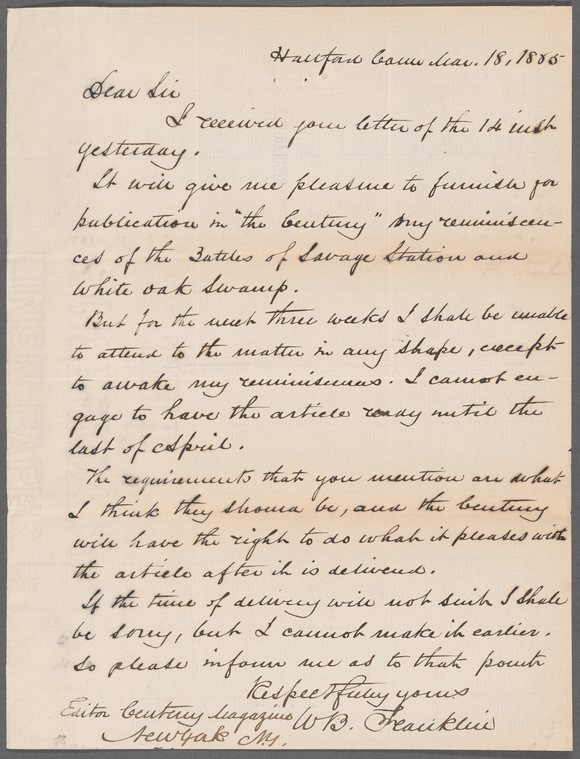 Hartford Conn Mar. 18, 1885
Dear Sir
I received your letter of the 14 inst
yesterday.
It will give me pleasure to furnish for
publication in "the Century" my reminiscen-
ces of the Battles of Savage Station and
White oak Swamp.
But for the next three weeks I shall be unable
to attend to the matter in any shape, except
to awake my reminiscences. I cannot en-
gage to have the article ready until the
last of April.
The requirements that you mention are what
I think they should be, and the Century
will have the right to do what it pleases with
the article after it is delivered.
If the time of delivery will not suit I shall
be sorry, but I cannot make it earlier.
So please inform me as to that point
Respectfully yours
W B. Franklin
Editor Century Magazine
New York N.Y.